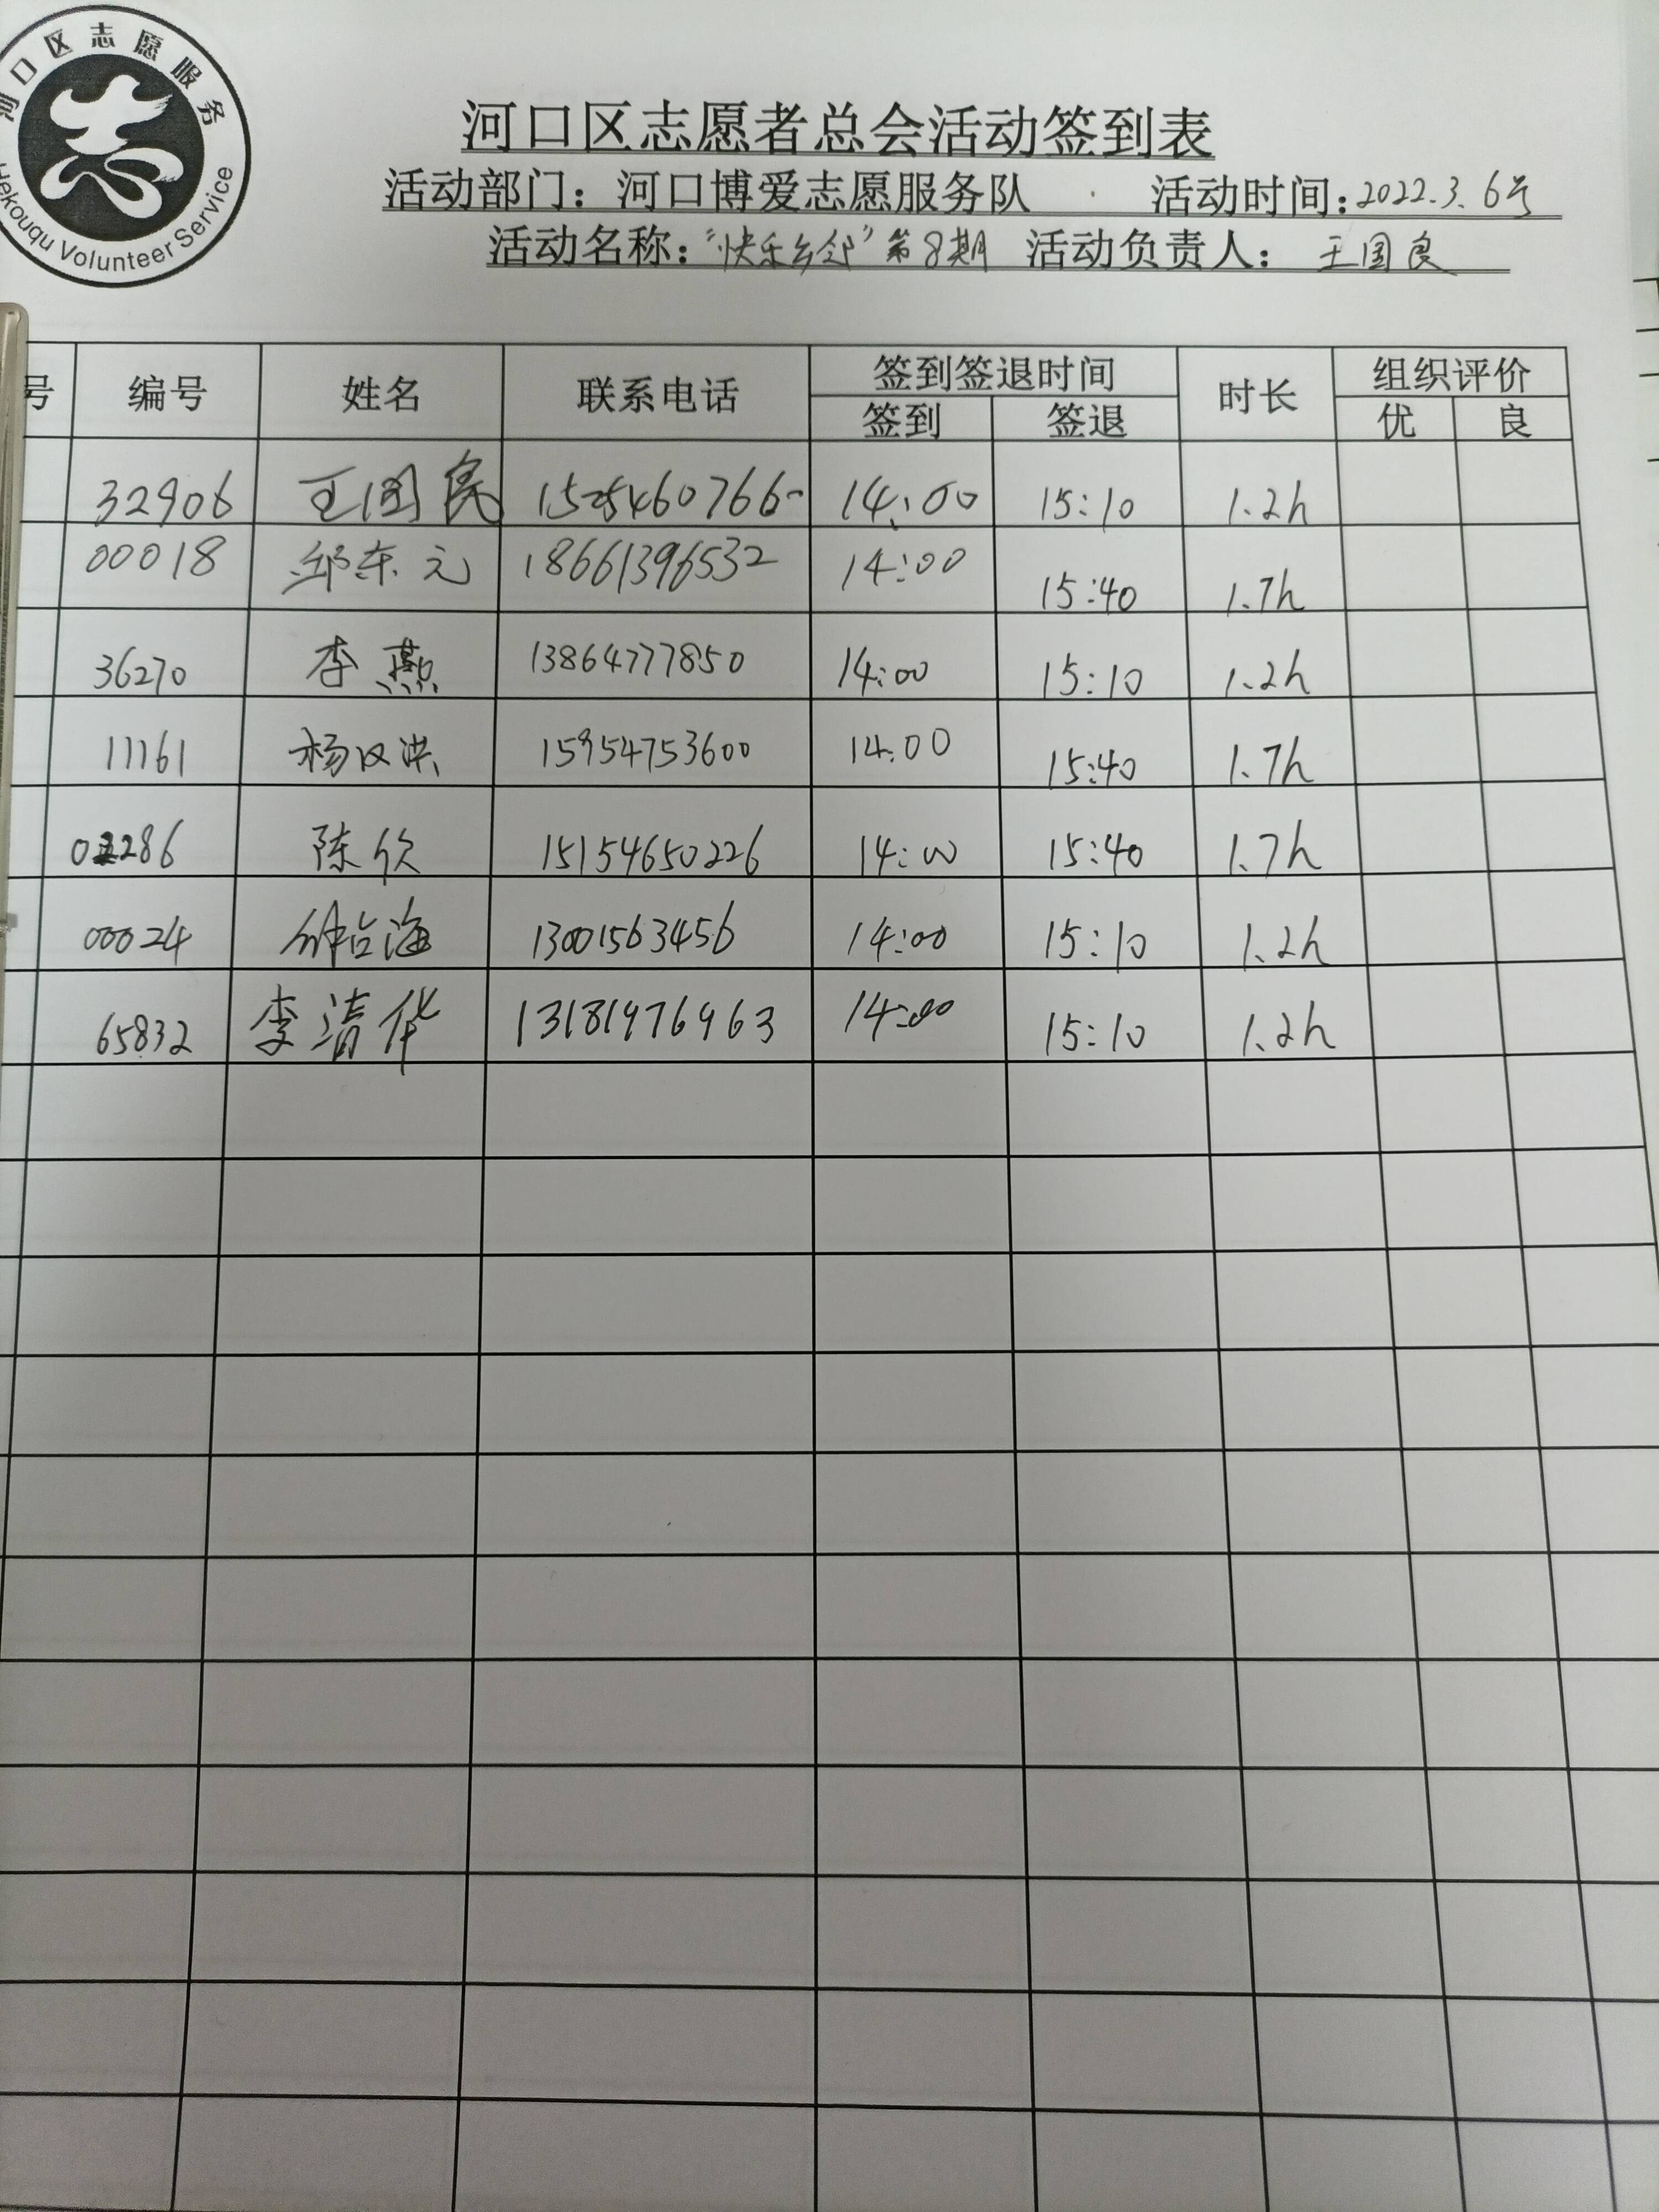 河口区志愿服务
Hekouqu Volunteer Service
河口区志愿者总会活动签到表
活动部门：河口博爱志愿服务队 活动时间：2022.3.6号
活动名称："快乐乡邻"第8期 活动负责人：王国良
号 编号 姓名 联系电话 签到签退时间 时长 组织评价
签到 签退 优 良
32906 王国良 14:00 15:10 1.2h
00018 邱东元 18661396532 14:00 15:40 1.7h
36270 李燕 13864777850 14:00 15:10 1.2h
11161 杨汉洪 15954753600 14:00 15:40 1.7h
陈欣 15154650226 14:00 15:40 1.7h
00024 钟台海 13001563456 14:00 15:10 1.2h
65832 李清华 13181976963 14:00 15:10 1.2h